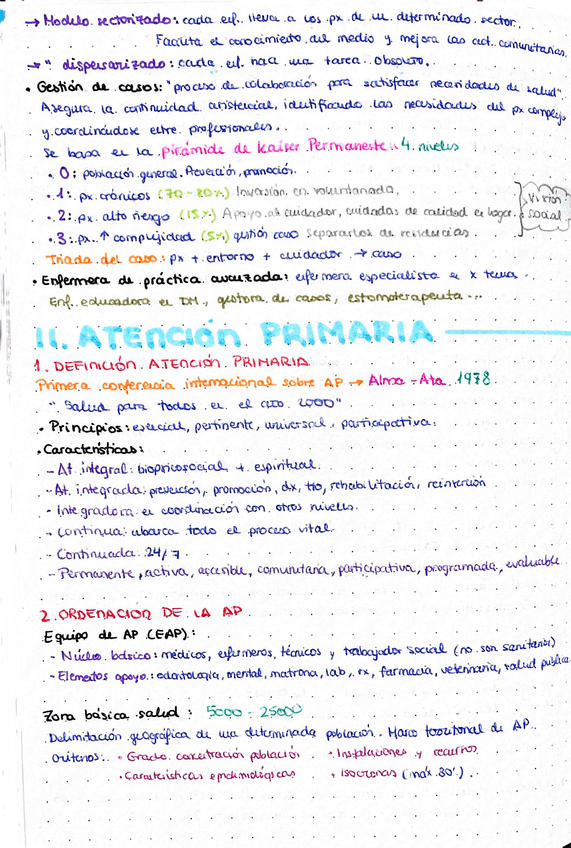 → Modelo sectorizado: cada enf. lleva a los px de un determinado sector.
Facilita el conocimiento del medio y mejora las act. comunitarias.
→ " dispensarizado: cada enf. hace una tarea. Obsoleto.
• Gestión de casos: "proceso de colaboración para satisfacer necesidades de salud"
Asegura la continuidad asistencial, identificando las necesidades del px complejo
y coordinándose entre profesionales.
Se basa en la pirámide de Kaiser Permanente: 4 niveles
• 0: población general. Prevención, promoción.
• 1: px crónicos (70-80%) Inversión en voluntariado.
• 2: px alto riesgo (15%) Apoyo al cuidador, cuidados de calidad en hogar.
• 3: px ↑ complejidad (5%) gestión caso separarlos de residencias.
Visión social
Triada del caso: px + entorno + cuidador → caso
• Enfermera de práctica avanzada: enfermera especialista en x tema
Enf. educadora en DM, gestora de casos, estomaterapeuta ...
II. ATENCIÓN PRIMARIA
1. DEFINICIÓN ATENCIÓN PRIMARIA
Primera conferencia internacional sobre AP → Alma-Ata 1978
"Salud para todos en el año 2000"
• Principios: esencial, pertinente, universal, participativa.
• Características:
- At. integral: biopsicosocial + espiritual.
- At. integrada: prevención, promoción, dx, tto, rehabilitación, reinserción
- Integradora: en coordinación con otros niveles.
- Continua: abarca todo el proceso vital.
- Continuada: 24/7.
- Permanente, activa, accesible, comunitaria, participativa, programada, evaluable
2. ORDENACIÓN DE LA AP
Equipo de AP (EAP):
- Núcleo básico: médicos, enfermeros, técnicos y trabajador social (no son sanitarios)
- Elementos apoyo: odontología, mental, matrona, lab, rx, farmacia, veterinaria, salud pública
Zona básica salud: 5000 - 25000
Delimitación geográfica de una determinada población. Marco territorial de AP.
Criterios: • Grado concentración población • Instalaciones y recursos
• Características epidemiológicas • Isocronas (máx. 30').